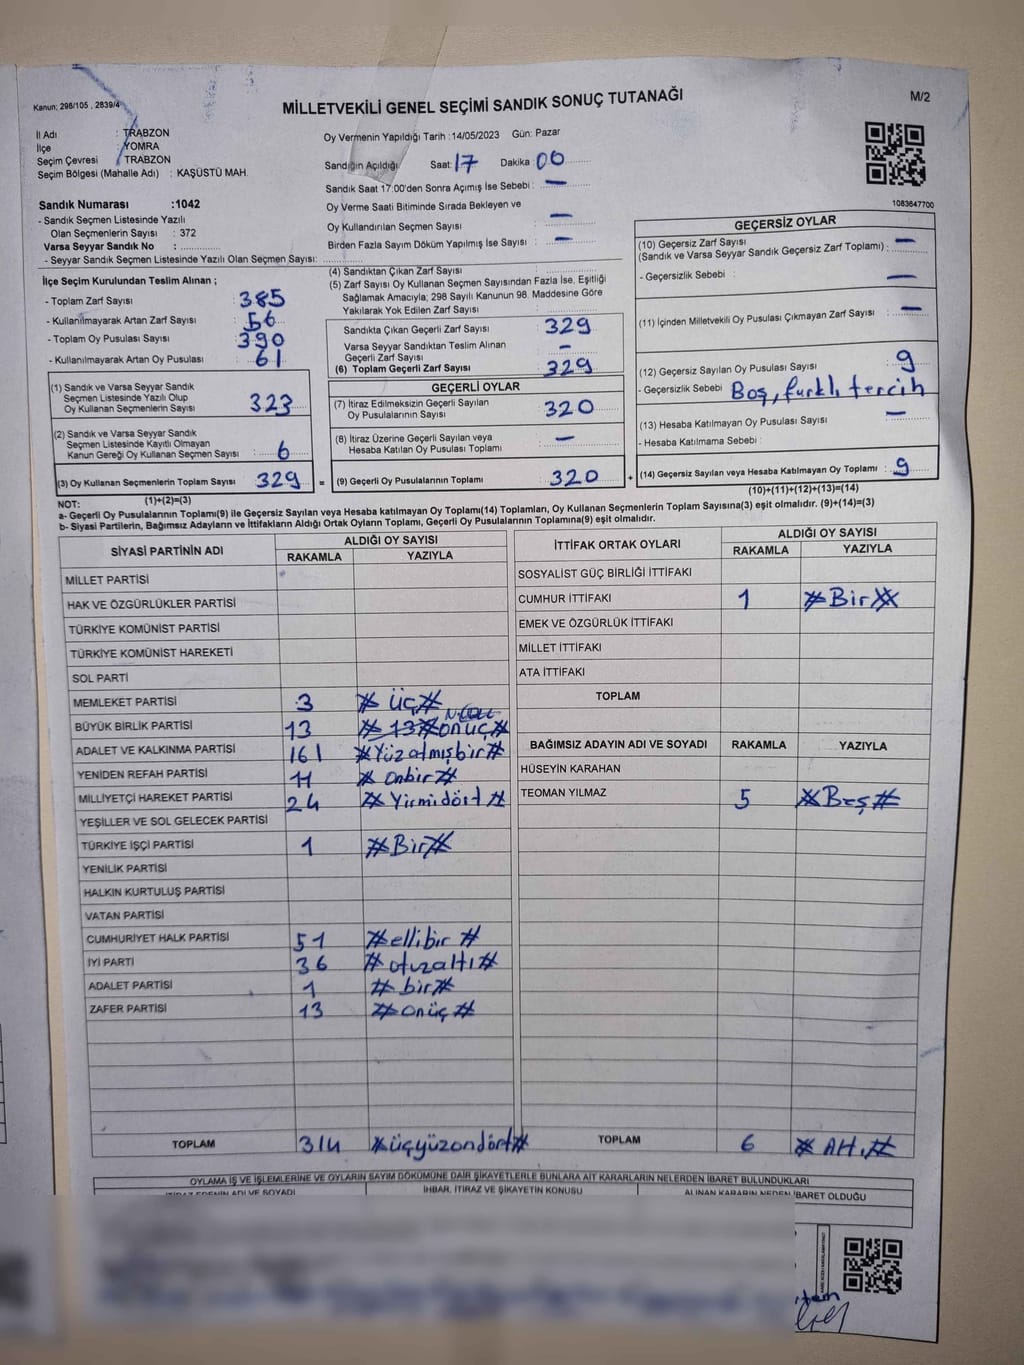 Kanun; 298/105 , 2839/4
MİLLETVEKİLİ GENEL SEÇİMİ SANDIK SONUÇ TUTANAĞI
M/2
İl Adı : TRABZON
İlçe : YOMRA
Seçim Çevresi : TRABZON
Seçim Bölgesi (Mahalle Adı) : KAŞÜSTÜ MAH.
Oy Vermenin Yapıldığı Tarih :14/05/2023 Gün: Pazar
Sandığın Açıldığı Saat: 17 Dakika 00
Sandık Saat 17:00'den Sonra Açımış İse Sebebi : —
Oy Verme Saati Bitiminde Sırada Bekleyen ve
Oy Kullandırılan Seçmen Sayısı : —
Birden Fazla Sayım Döküm Yapılmış İse Sayısı : —
1083647700
Sandık Numarası :1042
- Sandık Seçmen Listesinde Yazılı
Olan Seçmenlerin Sayısı : 372
Varsa Seyyar Sandık No :
- Seyyar Sandık Seçmen Listesinde Yazılı Olan Seçmen Sayısı:
İlçe Seçim Kurulundan Teslim Alınan ;
- Toplam Zarf Sayısı : 385
- Kullanılmayarak Artan Zarf Sayısı : 56
- Toplam Oy Pusulası Sayısı : 390
- Kullanılmayarak Artan Oy Pusulası : 61
(1) Sandık ve Varsa Seyyar Sandık
Seçmen Listesinde Yazılı Olup
Oy Kullanan Seçmenlerin Sayısı : 323
(2) Sandık ve Varsa Seyyar Sandık
Seçmen Listesinde Kayıtlı Olmayan
Kanun Gereği Oy Kullanan Seçmen Sayısı : 6
(3) Oy Kullanan Seçmenlerin Toplam Sayısı : 329
(1)+(2)=(3)
(4) Sandıktan Çıkan Zarf Sayısı :
(5) Zarf Sayısı Oy Kullanan Seçmen Sayısından Fazla İse, Eşitliği
Sağlamak Amacıyla; 298 Sayılı Kanunun 98. Maddesine Göre
Yakılarak Yok Edilen Zarf Sayısı :
Sandıkta Çıkan Geçerli Zarf Sayısı : 329
Varsa Seyyar Sandıktan Teslim Alınan
Geçerli Zarf Sayısı : —
(6) Toplam Geçerli Zarf Sayısı : 329
GEÇERLİ OYLAR
(7) İtiraz Edilmeksizin Geçerli Sayılan
Oy Pusulalarının Sayısı : 320
(8) İtiraz Üzerine Geçerli Sayılan veya
Hesaba Katılan Oy Pusulası Toplamı : —
= (9) Geçerli Oy Pusulalarının Toplamı : 320 +
GEÇERSİZ OYLAR
(10) Geçersiz Zarf Sayısı
(Sandık ve Varsa Seyyar Sandık Geçersiz Zarf Toplamı) : —
- Geçersizlik Sebebi : —
(11) İçinden Milletvekili Oy Pusulası Çıkmayan Zarf Sayısı : —
(12) Geçersiz Sayılan Oy Pusulası Sayısı : 9
- Geçersizlik Sebebi : Boş, farklı tercih
(13) Hesaba Katılmayan Oy Pusulası Sayısı : —
- Hesaba Katılmama Sebebi :
(14) Geçersiz Sayılan veya Hesaba Katılmayan Oy Toplamı : 9
(10)+(11)+(12)+(13)=(14)
NOT:
a- Geçerli Oy Pusulalarının Toplamı(9) ile Geçersiz Sayılan veya Hesaba Katılmayan Oy Toplamı(14) Toplamları, Oy Kullanan Seçmenlerin Toplam Sayısına(3) eşit olmalıdır. (9)+(14)=(3)
b- Siyasi Partilerin, Bağımsız Adayların ve İttifakların Aldığı Ortak Oyların Toplamı, Geçerli Oy Pusulalarının Toplamına(9) eşit olmalıdır.
SİYASİ PARTİNİN ADI ALDIĞI OY SAYISI
RAKAMLA YAZIYLA
MİLLET PARTİSİ
HAK VE ÖZGÜRLÜKLER PARTİSİ
TÜRKİYE KOMÜNİST PARTİSİ
TÜRKİYE KOMÜNİST HAREKETİ
SOL PARTİ
MEMLEKET PARTİSİ 3 # üç #
BÜYÜK BİRLİK PARTİSİ 13 # 13 # onüç #
ADALET VE KALKINMA PARTİSİ 161 # Yüzatmışbir #
YENİDEN REFAH PARTİSİ 11 # onbir #
MİLLİYETÇİ HAREKET PARTİSİ 24 # Yirmidört #
YEŞİLLER VE SOL GELECEK PARTİSİ
TÜRKİYE İŞÇİ PARTİSİ 1 # Bir #
YENİLİK PARTİSİ
HALKIN KURTULUŞ PARTİSİ
VATAN PARTİSİ
CUMHURİYET HALK PARTİSİ 51 # ellibir #
İYİ PARTİ 36 # otuzaltı #
ADALET PARTİSİ 1 # bir #
ZAFER PARTİSİ 13 # onüç #
TOPLAM 314 # üçyüzondört #
İTTİFAK ORTAK OYLARI ALDIĞI OY SAYISI
RAKAMLA YAZIYLA
SOSYALİST GÜÇ BİRLİĞİ İTTİFAKI
CUMHUR İTTİFAKI 1 # Bir #
EMEK VE ÖZGÜRLÜK İTTİFAKI
MİLLET İTTİFAKI
ATA İTTİFAKI
TOPLAM
BAĞIMSIZ ADAYIN ADI VE SOYADI RAKAMLA YAZIYLA
HÜSEYİN KARAHAN
TEOMAN YILMAZ 5 # Beş #
TOPLAM 6 # Altı #
OYLAMA İŞ VE İŞLEMLERİNE VE OYLARIN SAYIM DÖKÜMÜNE DAİR ŞİKAYETLERLE BUNLARA AİT KARARLARIN NELERDEN İBARET BULUNDUKLARI
İTİRAZ EDENİN ADI VE SOYADI İHBAR, İTİRAZ VE ŞİKAYETİN KONUSU ALINAN KARARIN NEDEN İBARET OLDUĞU